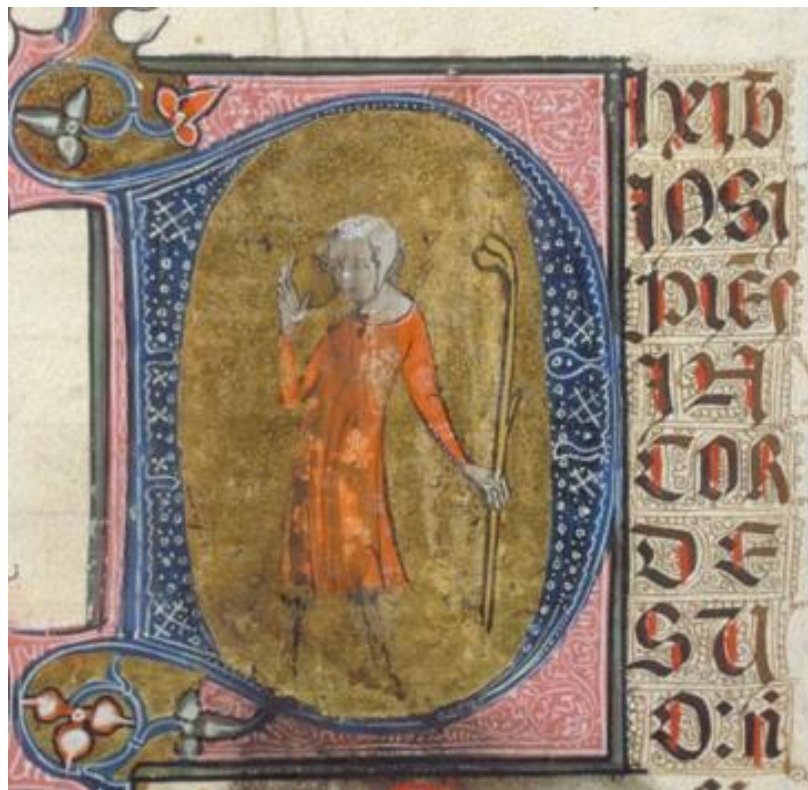 DIXIT
INSI
PIĒS
IN
COR
DE
SU
O:n